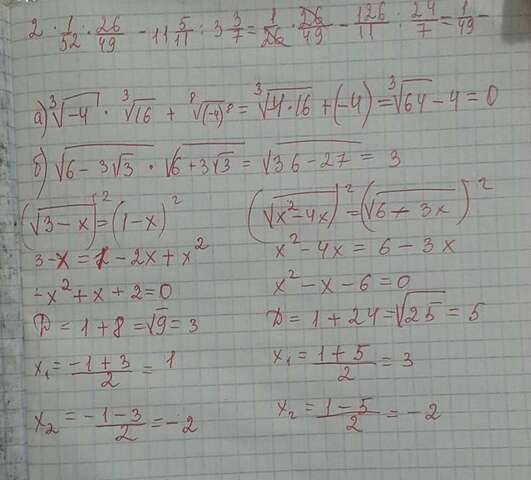 2 · 1/52 · 26/49 - 11 5/11 : 3 3/7 = 1/26 · 26/49 - 126/11 : 24/7 = 1/49 -
а) ∛-4 · ∛16 + ⁸√(-4)⁸ = ∛4·16 + (-4) = ∛64 - 4 = 0
б) √6-3√3 · √6+3√3 = √36-27 = 3
(√3-x)² = (1-x)²
3-x = 1-2x+x²
-x²+x+2=0
D = 1+8 = √9 = 3
x₁ = (-1+3)/2 = 1
x₂ = (-1-3)/2 = -2
(√x²-4x)² = (√6-3x)²
x²-4x = 6-3x
x²-x-6=0
D = 1+24 = √25 = 5
x₁ = (1+5)/2 = 3
x₂ = (1-5)/2 = -2